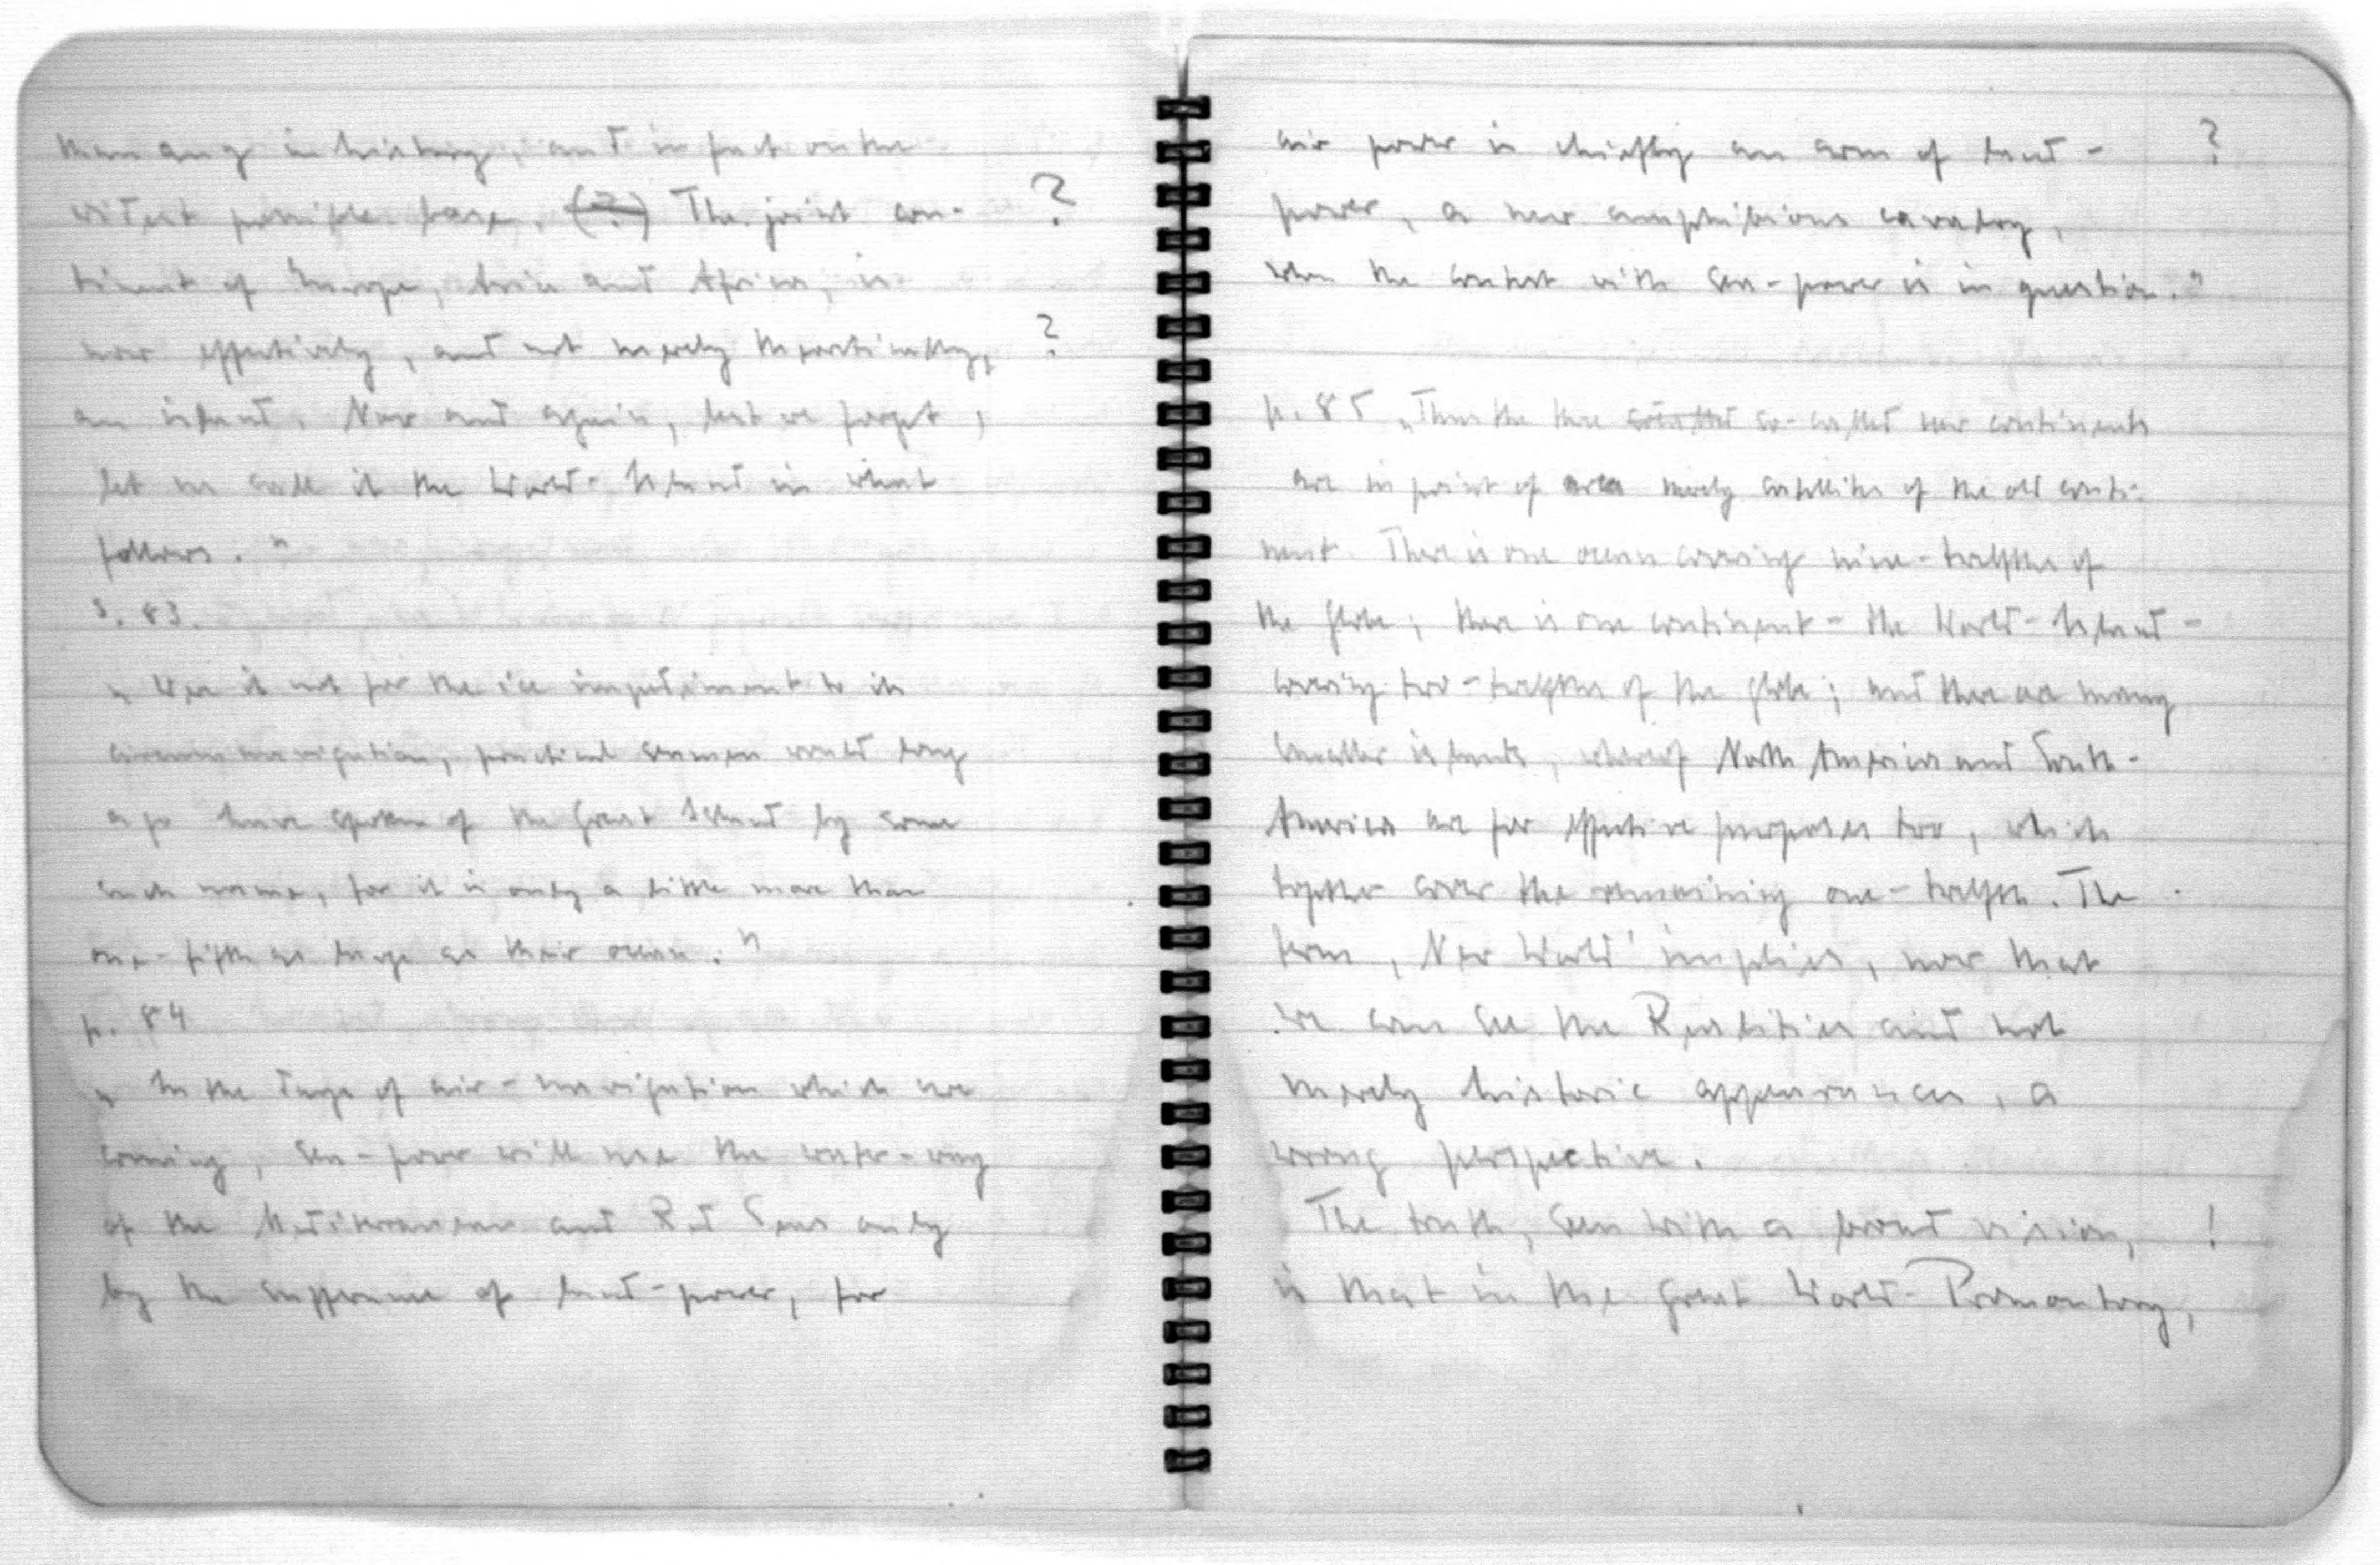 than any in history, and in fact on the
widest possible base. (?) The joint con- ?
tinent of Europe, Asia and Africa, is
now effectively, and not merely theoretically, ?
an island. Now and again, lest we forget,
let us call it the World-Island in what
follows."
S. 83.
„Were it not for the ice impediment to its
circumnavigation, practical seamen would long
ago have spoken of the Great Island by some
such name, for it is only a little more than
one-fifth as large as their ocean."
p. 84
„In the days of air-navigation which are
coming, sea-power will use the water-way
of the Mediterranean and Red Seas only
by the sufferance of land-power, for
air power is chiefly an arm of land- ?
power, a new amphibious cavalry,
when the contest with sea-power is in question."
p. 85 „Thus the three so-called new continents
are in point of area merely satellites of the old conti-
nent. There is one ocean covering nine-twelfths of
the globe; there is one continent - the World-Island -
covering two-twelfths of the globe; and there are many
smaller islands, whereof North America and South-
America are for effective purposes two, which
together cover the remaining one-twelfth. The
term ‚New World' implies, now that
we can see the Realities and not
merely historic appearances, a
wrong perspective.
The truth, seen with a broad vision, !
is that in the great World-Promontory,